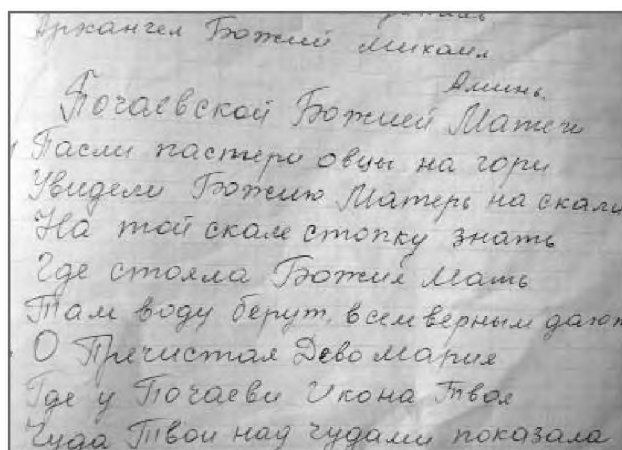 Архангел Божий Михаил
Аминь.
Почаевской Божией Матери
Пасли пастери овцы на гори
Увидели Божию Матерь на скали
На той скале стопку знать
Где стояла Божия Мать
Там воду берут, всем верным дают
О Пречистая Дево Мария
Где у Почаеви Икона Твоя
Чуда Твои над чудами показала